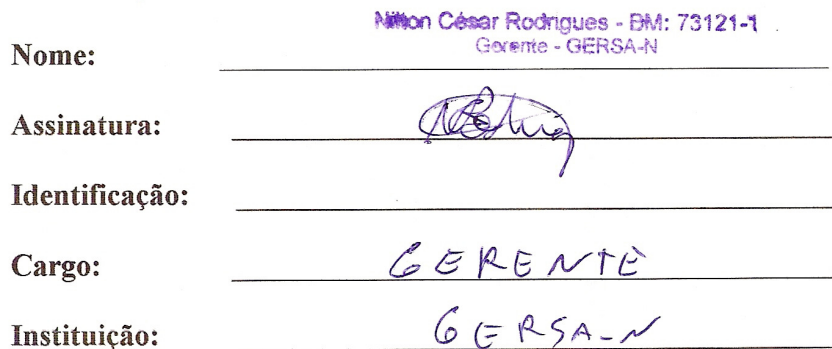 Nilton César Rodrigues - BM: 73121-1
Gerente - GERSA-N
Nome:
Assinatura:
Identificação:
Cargo: GERENTE
Instituição: GERSA-N